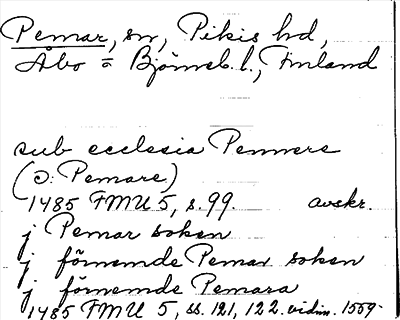 Pemar, sn, Pikis hd,
Åbo = Björneb. l., Finland
sub ecclesia Pemmers
(ɔ: Pemare)
1485 FMU 5, s. 99. avskr.
j Pemar soken
j förnemde Pemar soken
j förnemde Pemara
1485 FMU 5, ss. 121, 122. vidim. 1559.